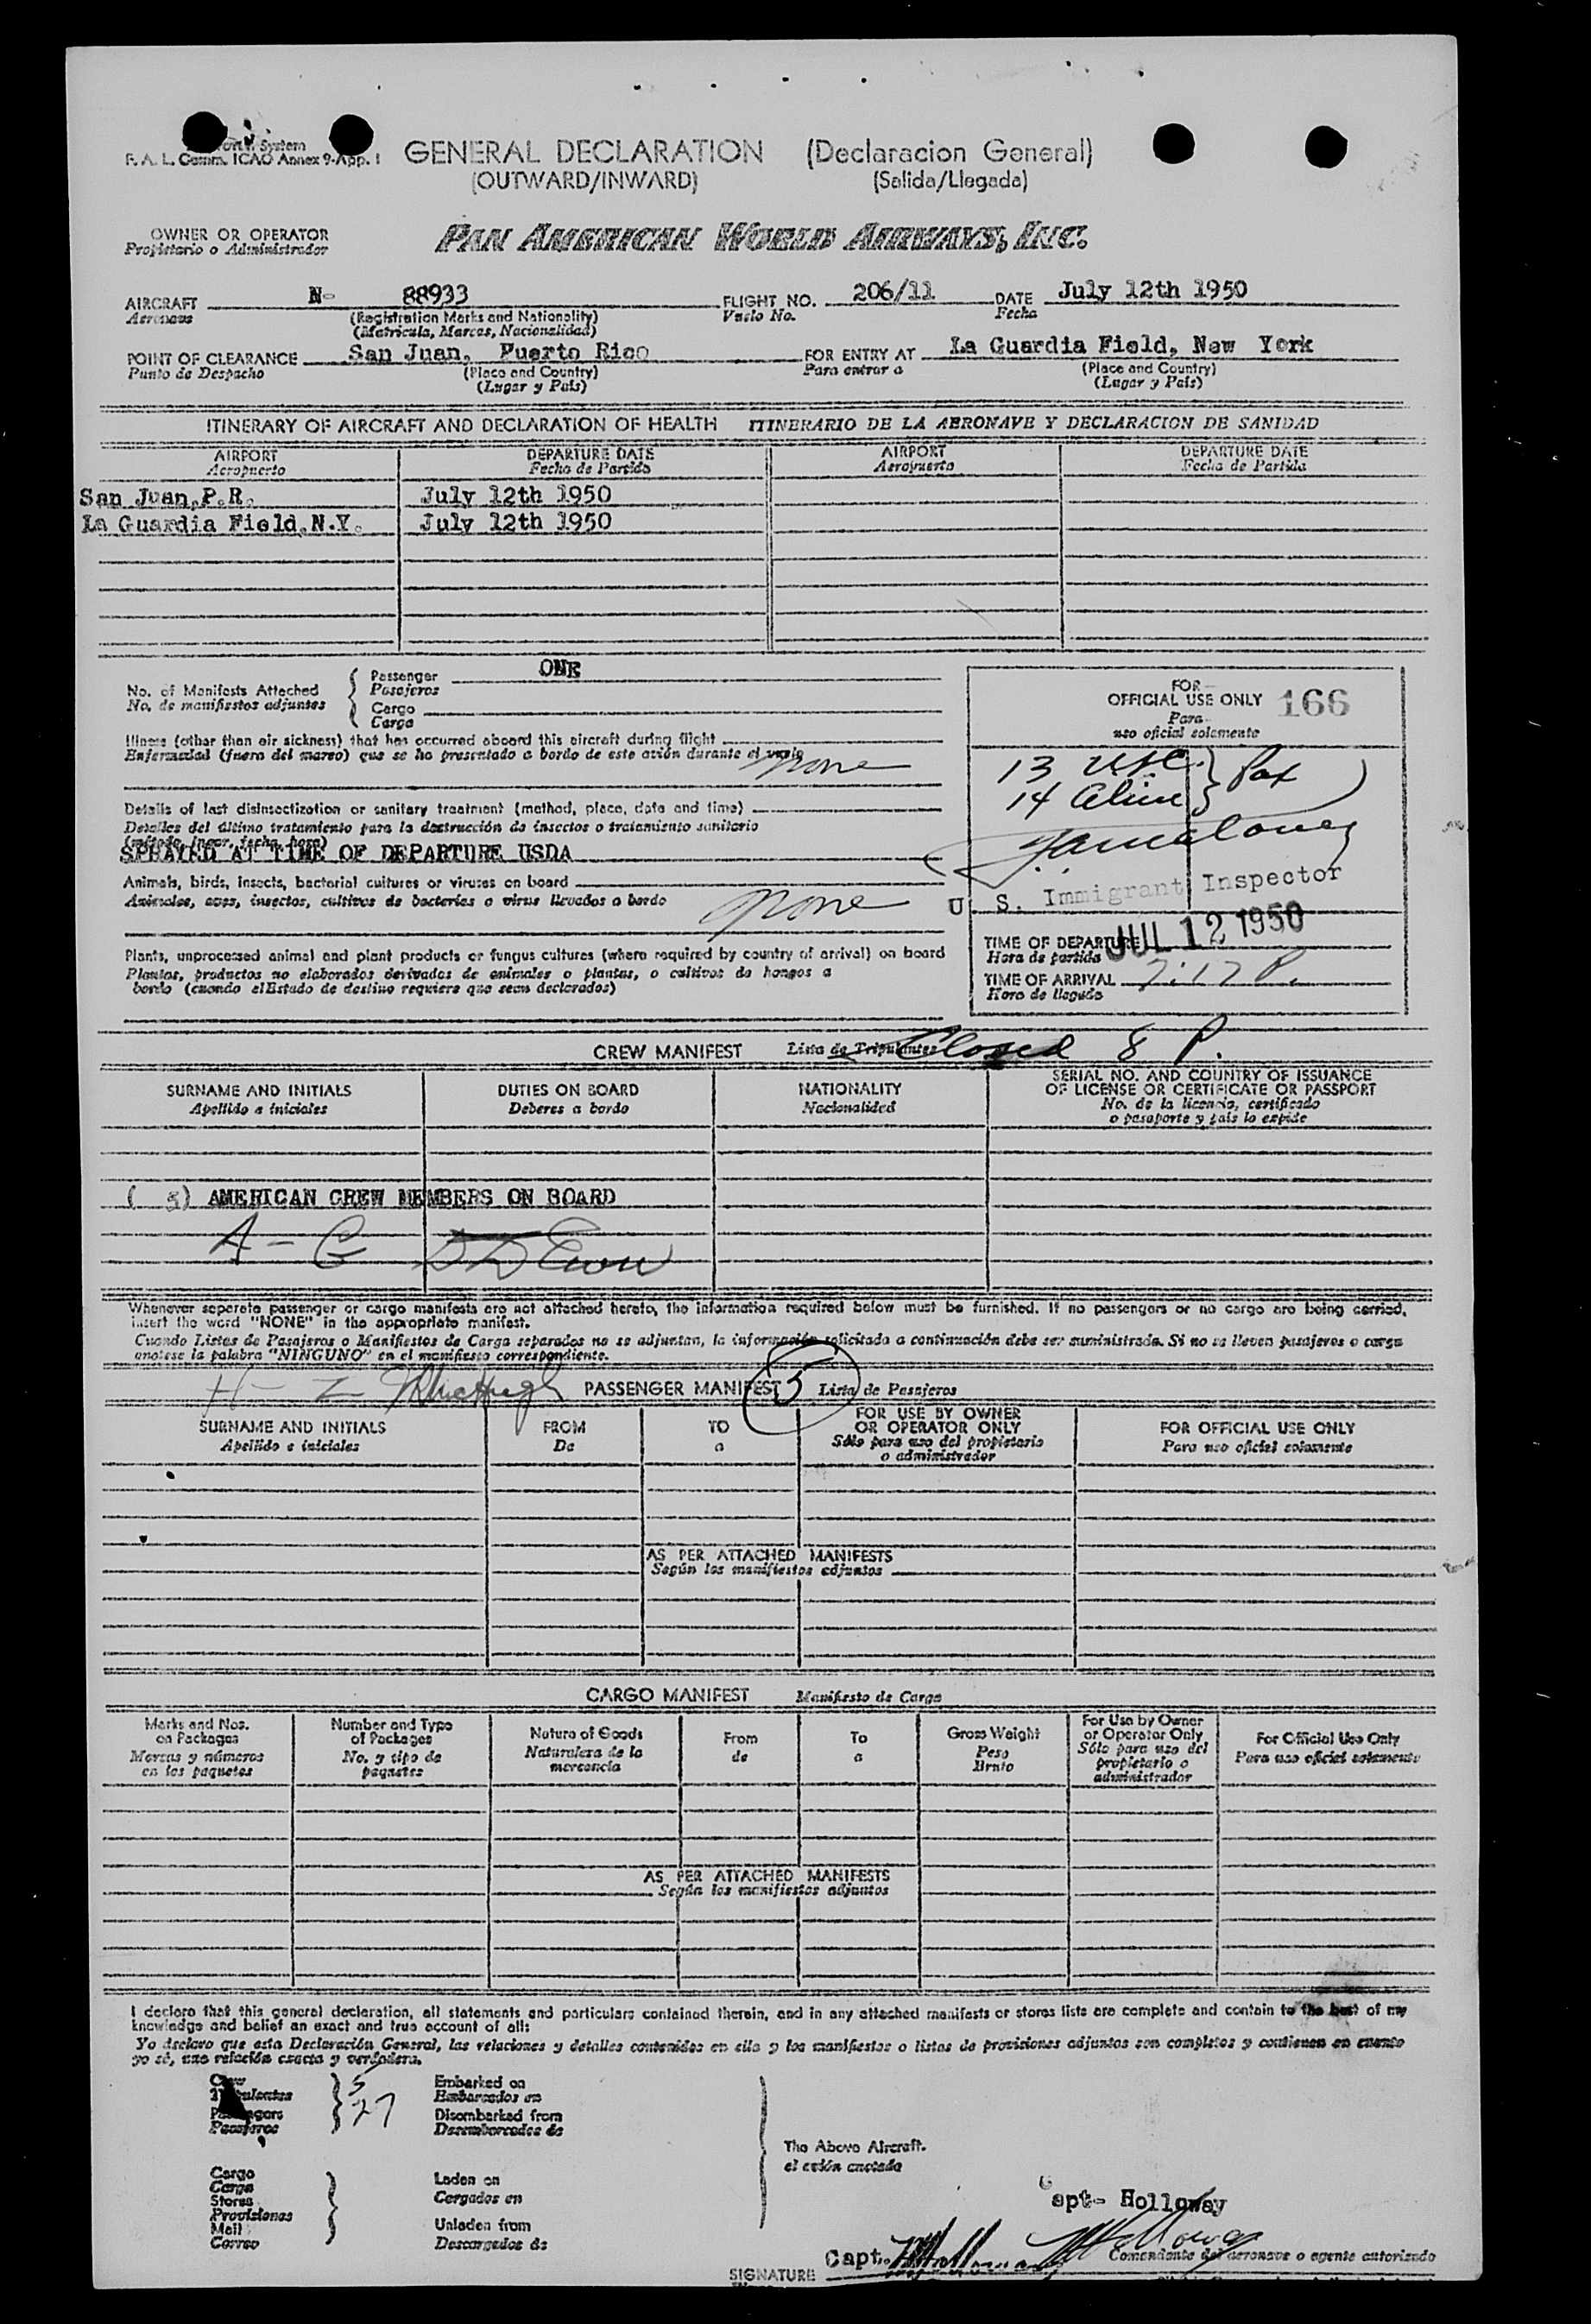 System
F. A. L. Comm. ICAO Annex 9-App. I
GENERAL DECLARATION (Declaracion General)
(OUTWARD/INWARD) (Salida/Llegada)
OWNER OR OPERATOR
Propietario o Administrador
PAN AMERICAN WORLD AIRWAYS, INC.
AIRCRAFT N- 88933 FLIGHT NO. 206/11 DATE July 12th 1950
Aeronave (Registration Marks and Nationality) Vuelo No. Fecha
(Matricula, Marcas, Nacionalidad)
POINT OF CLEARANCE San Juan, Puerto Rico FOR ENTRY AT La Guardia Field, New York
Punto de Despacho (Place and Country) Para entrar a (Place and Country)
(Lugar y País) (Lugar y País)
ITINERARY OF AIRCRAFT AND DECLARATION OF HEALTH ITINERARIO DE LA AERONAVE Y DECLARACION DE SANIDAD
AIRPORT DEPARTURE DATE AIRPORT DEPARTURE DATE
Aeropuerto Fecha de Partida Aeropuerto Fecha de Partida
San Juan,P.R. July 12th 1950
La Guardia Field,N.Y. July 12th 1950
No. of Manifests Attached
No. de manifiestos adjuntos
Passenger ONE
Pasajeros
Cargo
Carga
Illness (other than air sickness) that has occurred aboard this aircraft during flight
Enfermedad (fuera del mareo) que se ha presentado a bordo de este avión durante el vuelo
none
Details of last disinsectization or sanitary treatment (method, place, date and time)
Detalles del último tratamiento para la destrucción de insectos o tratamiento sanitario
(método, lugar, fecha, hora)
SPRAYED AT TIME OF DEPARTURE USDA
Animals, birds, insects, bacterial cultures or viruses on board
Animales, aves, insectos, cultivos de bacterias o virus llevados a bordo
none
Plants, unprocessed animal and plant products or fungus cultures (where required by country of arrival) on board
Plantas, productos no elaborados derivados de animales o plantas, o cultivos de hongos a
bordo (cuando el Estado de destino requiera que sean declarados)
FOR
OFFICIAL USE ONLY 166
Para
uso oficial solamente
13 USC.
14 Alien } Pax
U. S. Immigrant Inspector
JUL 12 1950
TIME OF DEPARTURE
Hora de partida
TIME OF ARRIVAL 7:17 P.
Hora de llegada
CREW MANIFEST Lista de Tripulantes Closed 8 P.
SURNAME AND INITIALS DUTIES ON BOARD NATIONALITY SERIAL NO. AND COUNTRY OF ISSUANCE
OF LICENSE OR CERTIFICATE OR PASSPORT
Apellido e iniciales Deberes a bordo Nacionalidad No. de la licencia, certificado
o pasaporte y país lo expide
( 5) AMERICAN CREW MEMBERS ON BOARD
A - G
Whenever separate passenger or cargo manifests are not attached hereto, the information required below must be furnished. If no passengers or no cargo are being carried,
insert the word "NONE" in the appropriate manifest.
Cuando Listas de Pasajeros o Manifiestos de Carga separados no se adjuntan, la información solicitada a continuación debe ser suministrada. Si no se lleven pasajeros o carga
anótese la palabra "NINGUNO" en el manifiesto correspondiente.
H - Z
PASSENGER MANIFEST 5 Lista de Pasajeros
SURNAME AND INITIALS FROM TO FOR USE BY OWNER
OR OPERATOR ONLY FOR OFFICIAL USE ONLY
Apellido e iniciales De a Sólo para uso del propietario
o administrador Para uso oficial solamente
AS PER ATTACHED MANIFESTS
Según los manifiestos adjuntos
CARGO MANIFEST Manifiesto de Carga
Marks and Nos.
on Packages
Marcas y números
en los paquetes
Number and Type
of Packages
No. y tipo de
paquetes
Nature of Goods
Naturaleza de la
mercancía
From
de
To
a
Gross Weight
Peso
Bruto
For Use by Owner
or Operator Only
Sólo para uso del
propietario o
administrador
For Official Use Only
Para uso oficial solamente
AS PER ATTACHED MANIFESTS
Según los manifiestos adjuntos
I declare that this general declaration, all statements and particulars contained therein, and in any attached manifests or stores lists are complete and contain to the best of my
knowledge and belief an exact and true account of all:
Yo declaro que esta Declaración General, las relaciones y detalles contenidos en ella y los manifiestos o listas de provisiones adjuntos son completos y contienen en cuanto
yo sé, una relación exacta y verdadera.
Crew 5
Passengers 27
Pasajeros
Embarked on
Embarcados en
Disembarked from
Desembarcados de
The Above Aircraft.
el avión anotado
Cargo
Carga
Stores
Provisiones
Mail
Correo
Laden on
Cargados en
Unladen from
Descargados de
Capt- Holloway
Capt. Holloway
Comandante del aeronave o agente autorizado
SIGNATURE